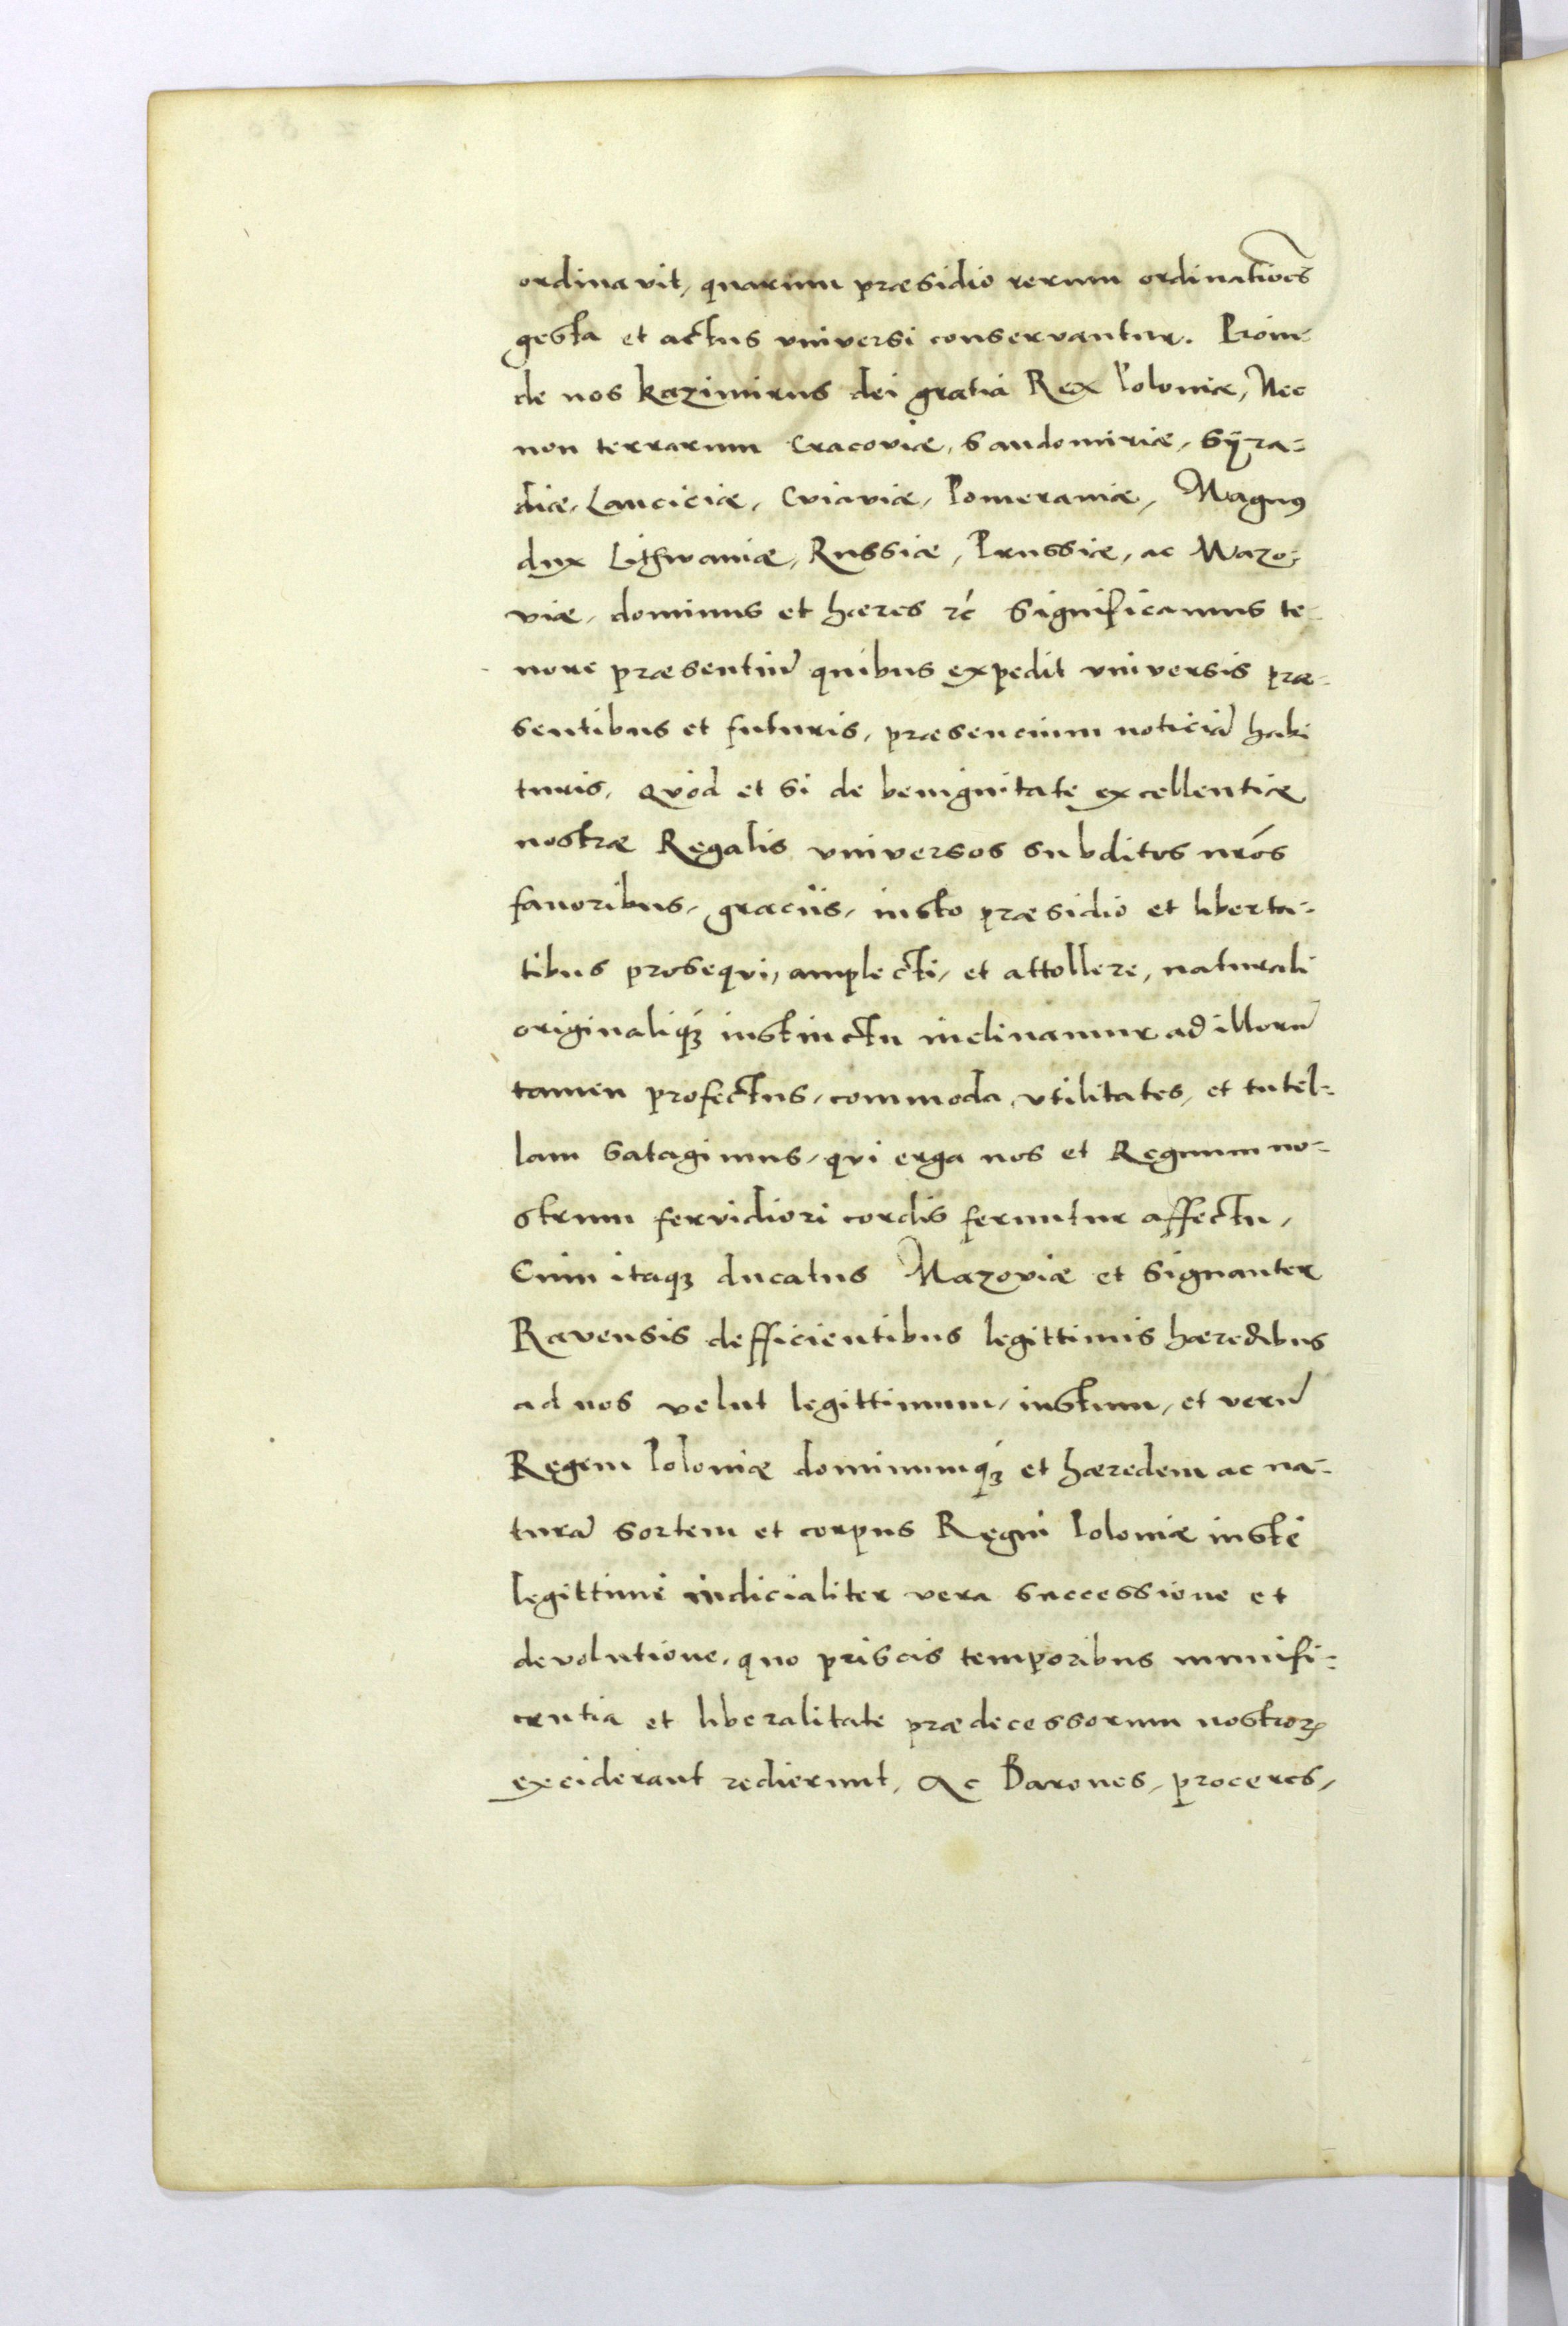 ordinavit, quarum præsidio rerum ordinatioēs
gesta et actus universi conservantur. Proin-
de nos kazimirus dei gratia Rex Poloniæ, Nec
non terrarum Cracoviæ, Sandomiriæ, Sÿra-
diæ, Lanciciæ, Cviaviæ, Pomeraniæ, Magnꝰ
dux Lithwaniæ, Russiæ, Prussiæ, ac Mazo-
viæ, dominus et hæres ⁊c̄ Significamus te-
nore præsentiū quibus expedit universis præ-
sentibus et futuris, præsencium noticiā habi
turis, Qvod et si de benignitate excellentiæ
nostræ Regalis universos subditos nrōs
favoribus, graciis, iusto præsidio et liberta-
tibus proseqvi, amplecti, et attollere, naturali
originaliqꝫ instinctu inclinamur ad illorū
tamen profectus, commoda, vtilitates, et tutel-
lam satagimus, qvi erga nos et Regnum no-
strum fervidiori cordis feruntur affectu,
Cum itaqꝫ ducatus Mazoviæ et signanter
Ravensis defficientibus legittimis hæredibus
ad nos velut legittimum, iustum, et verū
Regem Poloniæ dominumqꝫ et hæredem ac na-
turā sortem et corpus Regni Poloniæ iuste
legittime iudicialiter vera successione et
devolutione, quo priscis temporibus munifi-
centia et liberalitate prædecessorum nostroꝝ
exciderant redierunt, Ac Barones, proceres,